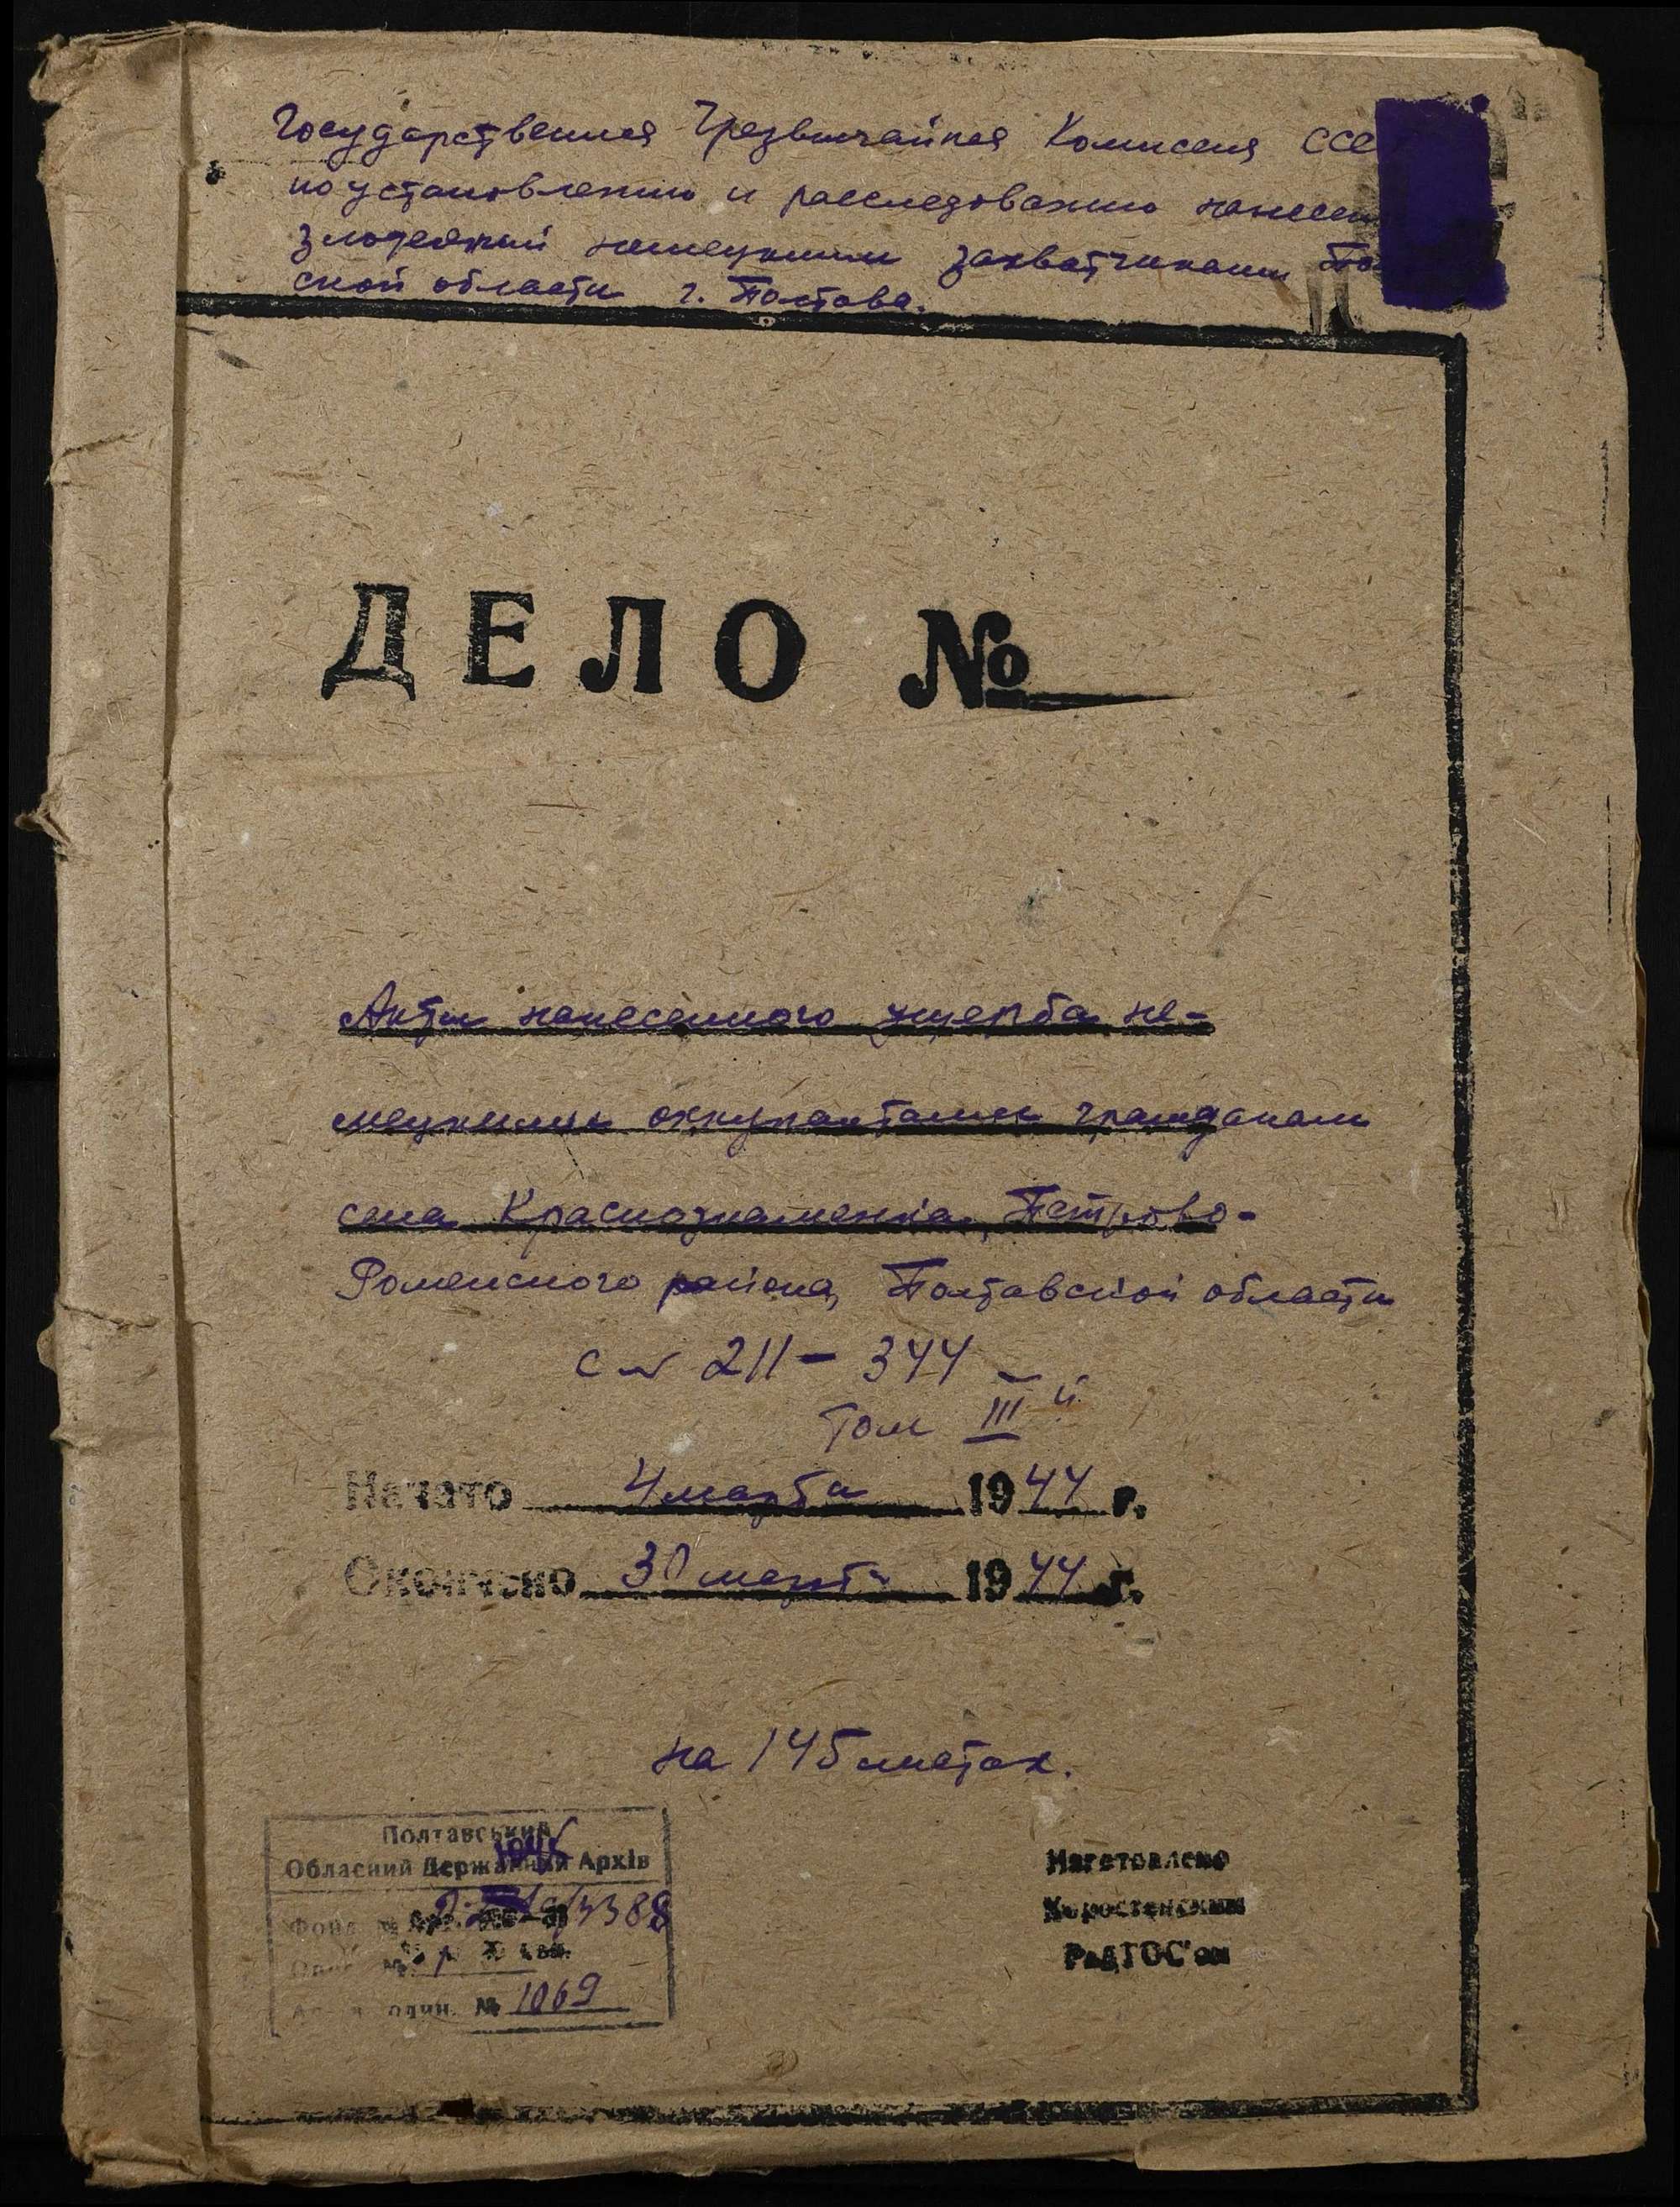 Государственная Чрезвычайная Комиссия ССС
по установлению и расследованию нанесен
злодеяний немецкими захватчиками По
ской области г. Полтава.
ДЕЛО №
Акты нанесенного ущерба не-
мецкими оккупантами гражданам
села Краснознаменка, Петрово-
Роменского района, Полтавской области
с № 211 – 344
Том III й
Начато 4 марта 1944 г.
Окончено 30 марта 1944 г.
на 145 листах.
Полтавський
Обласний Державний Архів
Фонд № 3388
Опис № 1
один. № 1069
Изготовлено
Коростенским
РайТОС'ом